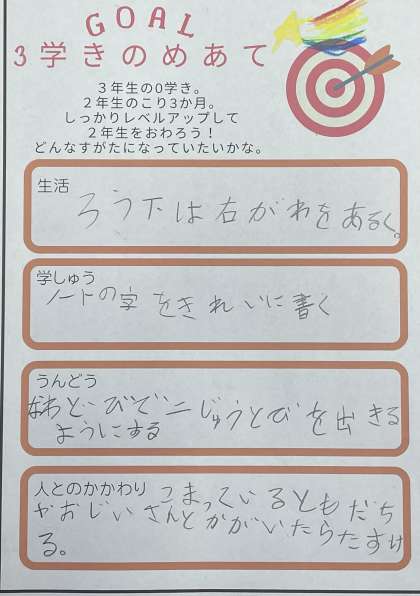 GOAL
3学きのめあて
3年生の0学き。
2年生のこり3か月。
しっかりレベルアップして
2年生をおわろう！
どんなすがたになっていたいかな。
生活
ろう下は右がわをあるく。
学しゅう
ノートの字をきれいに書く
うんどう
なわとびで二じゅうとびを出きる
ようにする
人とのかかわり こまっているともだち
やおじいさんとかがいたらたすけ
る。